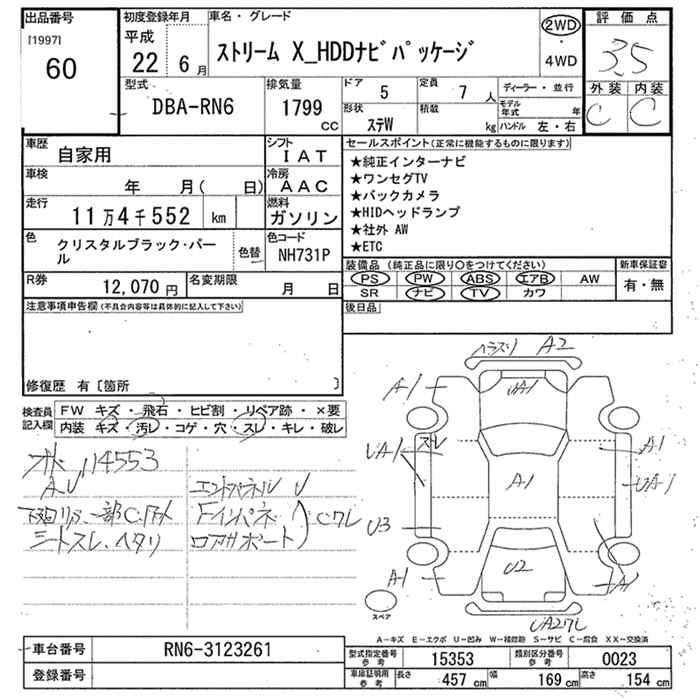 出品番号
[1997]
60
初度登録年月
平成
22 6月
車名・グレード
ストリーム X_HDDナビパッケージ
2WD
・
4WD
評価点
3.5
外装 内装
C C
型式
DBA-RN6
排気量
1799
CC
ドア 5
定員 7人
形状 ステW
積載 kg
ディーラー・並行
モデル年式 年
ハンドル 左・右
車歴
自家用
シフト
IAT
車検
年 月( 日)
冷房
AAC
走行
11万4千552 km
燃料
ガソリン
色
クリスタルブラック・パール
色替
色コード
NH731P
R券
12,070円
名変期限
月 日
セールスポイント(正常に機能するものに限ります)
★純正インターナビ
★ワンセグTV
★バックカメラ
★HIDヘッドランプ
★社外 AW
★ETC
装備品(純正品に限り○をつけてください)
PS PW ABS エアB AW
SR ナビ TV カワ
新車保証書
有・無
後日品
注意事項申告欄(不具合内容等は具体的に記入して下さい)
修復歴 有〔箇所 〕
検査員記入欄
FW キズ・飛石・ヒビ割・リペア跡・×要
内装 キズ・汚レ・コゲ・穴・スレ・キレ・破レ
114553
AU
エンドパネル U
下回リサ、一部C.下ス
Fインパネ
シートスレ、ヘタリ
ロアサポート
Cワレ
ヘラズリ A2
A1
UA1
UA1
スレ
A1
A1
UA1
U3
U2
A1
A1
UA2ワレ
スペア
A-キズ E-エクボ U-凹み W-補修跡 S-サビ C-腐食 XX-交換済
車台番号
RN6-3123261
登録番号
型式指定番号 参考
15353
類別区分番号 参考
0023
車庫証明用 参考
長さ 457 cm
幅 169 cm
高さ 154 cm